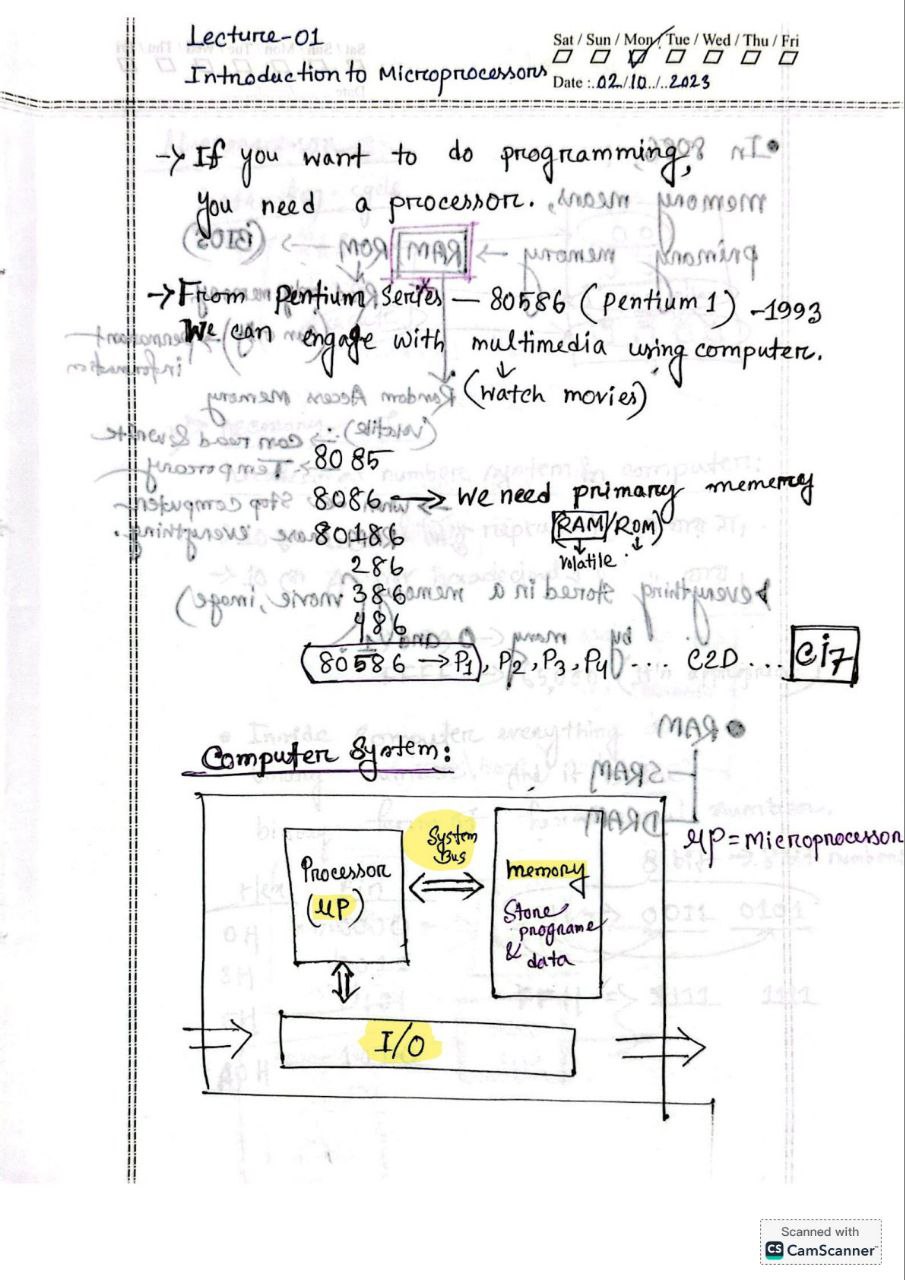 Lecture-01
Introduction to Microprocessors
Sat / Sun / Mon / Tue / Wed / Thu / Fri
Date : 02/10/2023
-> If you want to do programming,
you need a processor.
-> From Pentium Series — 80586 (Pentium 1) -1993
We can engage with multimedia using computer.
(watch movies)
8085
8086 -> We need primary memery
(RAM/ROM)
Volatile
80486
286
386
486
80586 -> P1, P2, P3, P4 .... C2D ... Ci7
Computer System:
Processor
(μP)
System
Bus
memory
Store
programe
& data
μP = Microprocessor
I/O
Scanned with
CS CamScanner